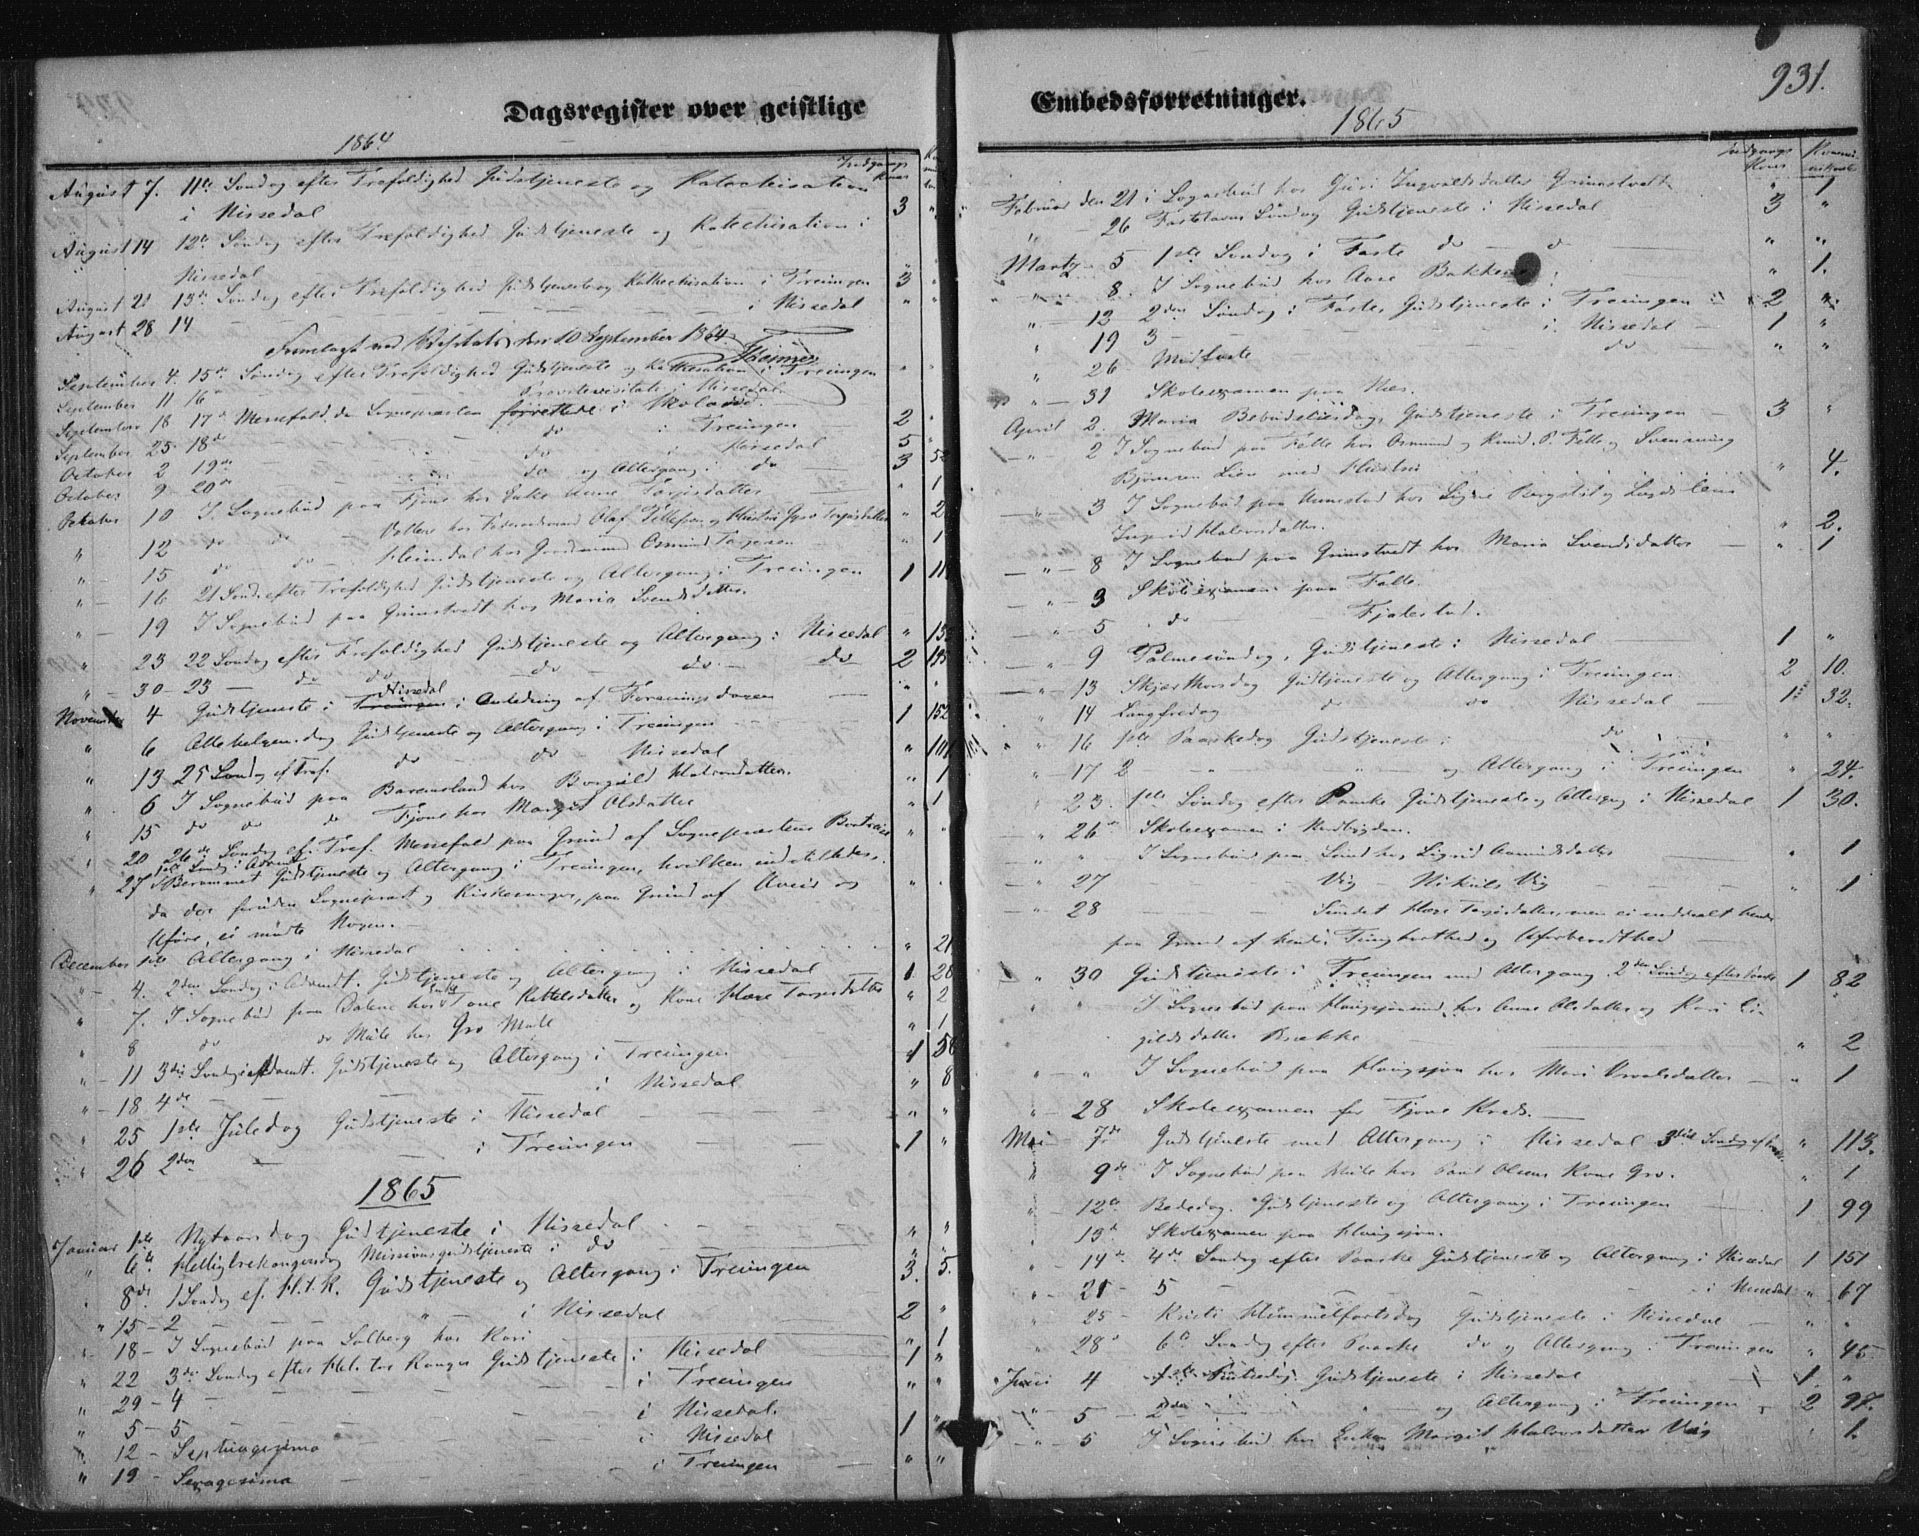 Dagsregister over geistlige
1864
Indgangs Koner
August 7. 11te Søndag efter Trefoldighed Gudstjeneste og Katechisation
i Nissedal 3 "
August 14 12te Søndag efter Trefoldighed Gudstjeneste og Katechisation i
Nissedal " "
August 21 13de Søndag efter Trefoldighed Gudstjeneste og Kathechisation i Treungen 3 "
August 28 14 — — — i Nissedal " "
Fremlagt ved Visitats den 10 September 1864
September 4. 15de Søndag efter Trefoldighed Gudstjeneste og Kathechisation i Treungen " "
September 11 16de Provstevisitats i Nissedal
September 18 17de Messefald, da Sognepræsten forrettede i 2 "
September 25 18de — — do i Treungen 5 "
October 2 19de — — do — Nissedal 3 52
October 9 20de — — do og Altergang i do " 1
October 10 I Sognebud paa Fjone hos Enke Anne Torjusdatter " 2
" 12 do do Vollen hos Føderaadsmand Olaf Tellefsen og Hustru Gro Torjusdatter " 1
" 15 do do Heimdal hos Gaardmand Osmund Torjesen
" — 16 21 Sønd. efter Trefoldighed Gudstjeneste og Altergang i Treungen 1
" — 19 I Sognebud paa Grimstvedt hos Maria Svendsdatter
" 23 22 Søndag efter Trefoldighed Gudstjeneste og Altergang i Nissedal "
" — 30 — 23 — do do — do — do — do 2
November 4 Gudstjeneste i Nissedal i Anledning af Foreningsdagen " "
" 6 Allehelgensdag Gudstjeneste og Altergang i Treungen 1 152
" 13 25 Søndag ef. Tref. do do Nissedal "
" 6 I Sognebud paa hos Borgild Halvorsdatter " 1
" 15 do do do Fjone hos Margit Olsdatter " 1
" 20 26de Søndag ef. Tref. Messefald paa Grund af Sognepræstens Bortreise " "
" 27 1ste Sønd. i Advent Berammet Gudstjeneste og Altergang i Treungen, hvilken indstilledes,
da der foruden Sognepræst og Kirkesanger, paa Grund af Aveir og
Uføre, ei mødte Nogen. " "
December 1ste Altergang i Nissedal " 21
" — 4. 2den Søndag i Advendt. Gudstjeneste og Altergang i Nissedal 1 28
" 7. I Sognebud paa hos Enke Tone Kettelsdatter og Kone Hæge Torjusdatter " 2
" 8 do do Mule hos Gro Mule " 1
" — 11 3die Søndag i Advent. Gudstjeneste og Altergang i Treungen 1 56
" — 18 4de — — i Nissedal " 8
" 25 1ste Juledag Gudstjeneste i Nissedal " "
" 26 2den — — i Treungen 1 "
1865
Januar 1ste Nytaarsdag Gudstjeneste i Nissedal " "
" 6te Helligtrekongersdag Missionsgudstjeneste i do " "
" 8de 1 Søndag ef. H.t.K. Gudstjeneste og Altergang i Treungen 3. 5.
" 15 — 2 — — " — i Nissedal 2 "
" 18 — I Sognebud paa Solberg hos Kari " 1
" 22 3die Søndag efter Hel. tre Konger Gudstjeneste i Nissedal 1 "
" 29 — 4 — — i Treungen " "
" 5 — 5 — — i Nissedal.
" 12 — Septuagesima — i Nissedal 1 "
" 19 — Sexagesima — i Treungen " "
Embedsforretninger.
931.
1865
Indgangs Koner
Februar den 21 i Sognebud hos Guri Ingvaldsdatter Grimstvedt " 1
" — 26 Fastelavns Søndag Gudstjeneste i Nissedal 3 "
Martz 5 1ste Søndag i Faste do — d " "
" 8. I Sognebud hos Aase Bakken " 1.
" — 12 2den Søndag i Faste, Gudstjeneste i Treungen 2 "
" 19 3 — — i Nissedal 1 "
" 26 Midfaste — do " "
" — 31 Skoleexamen paa Næs.
April 2. Maria Bebudelsesdag, Gudstjeneste i Treungen 3 "
— " — 2 I Sognebud paa Felle hos Osmund og Knud P. Felle og Svenning
Bjørnsen Lien med Hustru " 4.
" 3 I Sognebud paa hos Signe og
Ingrid Halvorsdatter. " 2.
— " — 8 I Sognebud paa Grimstvedt hos Maria Svendsdatter " 1
— " — 3 Skoleexamen paa Felle.
— " — 5 do — Fjalestad.
— " — 9 Palmesøndag, Gudstjeneste i Nissedal 1 "
— " — 13 Skjærthorsdag Gudstjeneste og Altergang i Treungen 2 10.
" 14 Langfredag do do Nissedal 1 32.
" " 16 1ste Paaskedag Gudstjeneste i do " "
" 17 2 — " — og Altergang i Treungen " 24.
" 23. 1ste Søndag efter Paaske Gudstjeneste og Altergang i Nissedal 1 30.
— " 26de Skoleexamen i
— " " I Sognebud paa Sund hos Sigrid Aamundsdatter " 1
— " 27 — — Vig — Vig " 1
— " 28 — — Sundet Hæge Torjusdatter, men ei meddealt hende
paa Grund af hendes Tunghørthed og Uforberedthed
" 30 Gudstjeneste i Treungen med Altergang 2den Søndag efter Paaske 1 82
" " I Sognebud paa hos Anne Olsdatter og Kari
gildsdatter Brække " 2
" — " I Sognebud paa Haugsjøen hos Mari " 1
" — 28 Skoleexamen for Fjone Kreds.
Mai 7de Gudstjeneste med Altergang i Nissedal 3die Søndag ef. Paaske " 113.
" 9de I Sognebud paa Mule hos Paul Olsens Kone Gro. " 1
" 12te Bededag. Gudstjeneste og Altergang i Treungen 1 99
" 13de Skoleexamen paa Haugsjøen.
" 14de 4de Søndag efter Paaske Gudstjeneste og Altergang i Nissedal 1 151
" 21 — 5 — — i Nissedal " 67
" 25 — Kristi Himmelfartsdag Gudstjeneste i Nissedal " "
" 28de 6te Søndag efter Paaske do og Altergang i Treungen " 45
Juni 4 1ste Pintsedag. Gudstjeneste i Nissedal 1 "
" — 5 — 2den — " — og Altergang i Treungen 2 97.
— " — 5 I Sognebud hos Enke Margit Halvorsdatter Vig " 1.